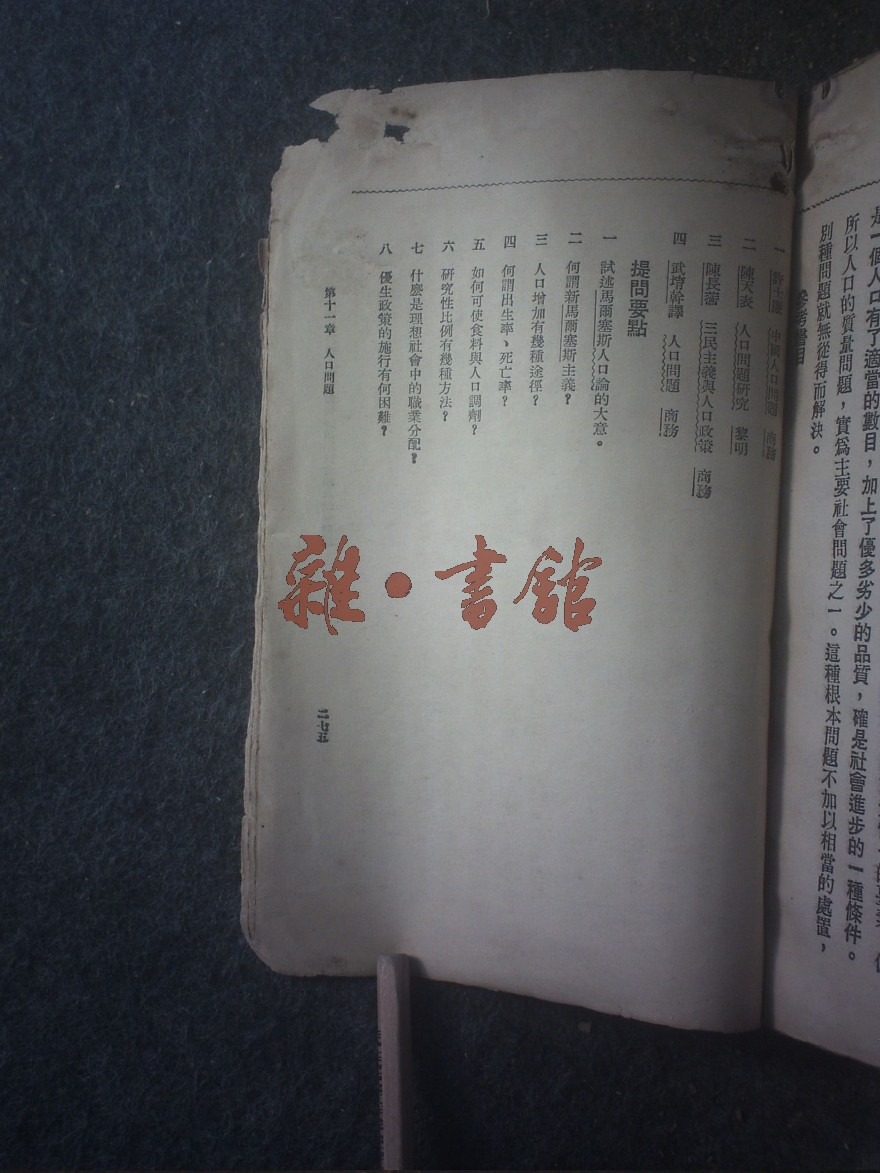 是一個人口有了適當的數目，加上了優多劣少的品質，確是社會進步的一種條件。
所以人口的質量問題，實爲主要社會問題之一。這種根本問題不加以相當的處置，
別種問題就無從得而解決。
參考書目
一 許士廉 中國人口問題 商務
二 陳天表 人口問題研究 黎明
三 陳長蘅 三民主義與人口政策 商務
四 武堉幹譯 人口問題 商務
提問要點
一 試述馬爾塞斯人口論的大意。
二 何謂新馬爾塞斯主義？
三 人口增加有幾種途徑？
四 何謂出生率、死亡率？
五 如何可使食料與人口調劑？
六 研究性比例有幾種方法？
七 什麼是理想社會中的職業分配？
八 優生政策的施行有何困難？
第十一章 人口問題
二七五
雜•書館